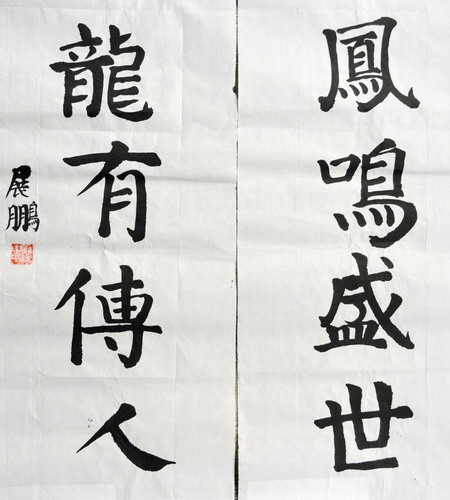 鳳鳴盛世
龍有傳人
展鵬